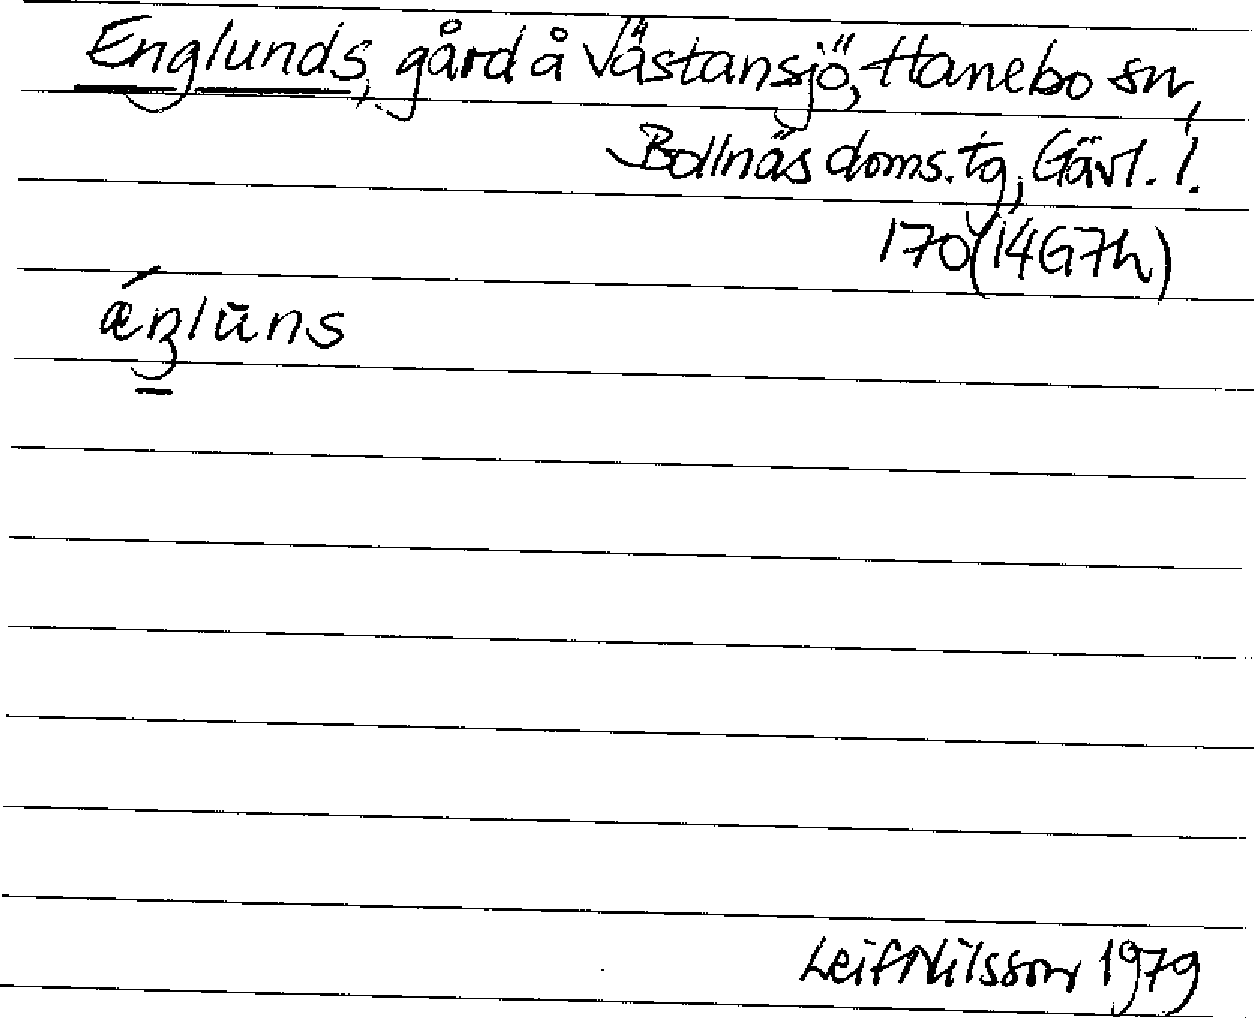 Englunds, gård å Västansjö, Hanebo sn,
Bollnäs doms. tg, Gävl. l.
170 (14G7h)
ǽŋlūns
Leif Nilsson 1979